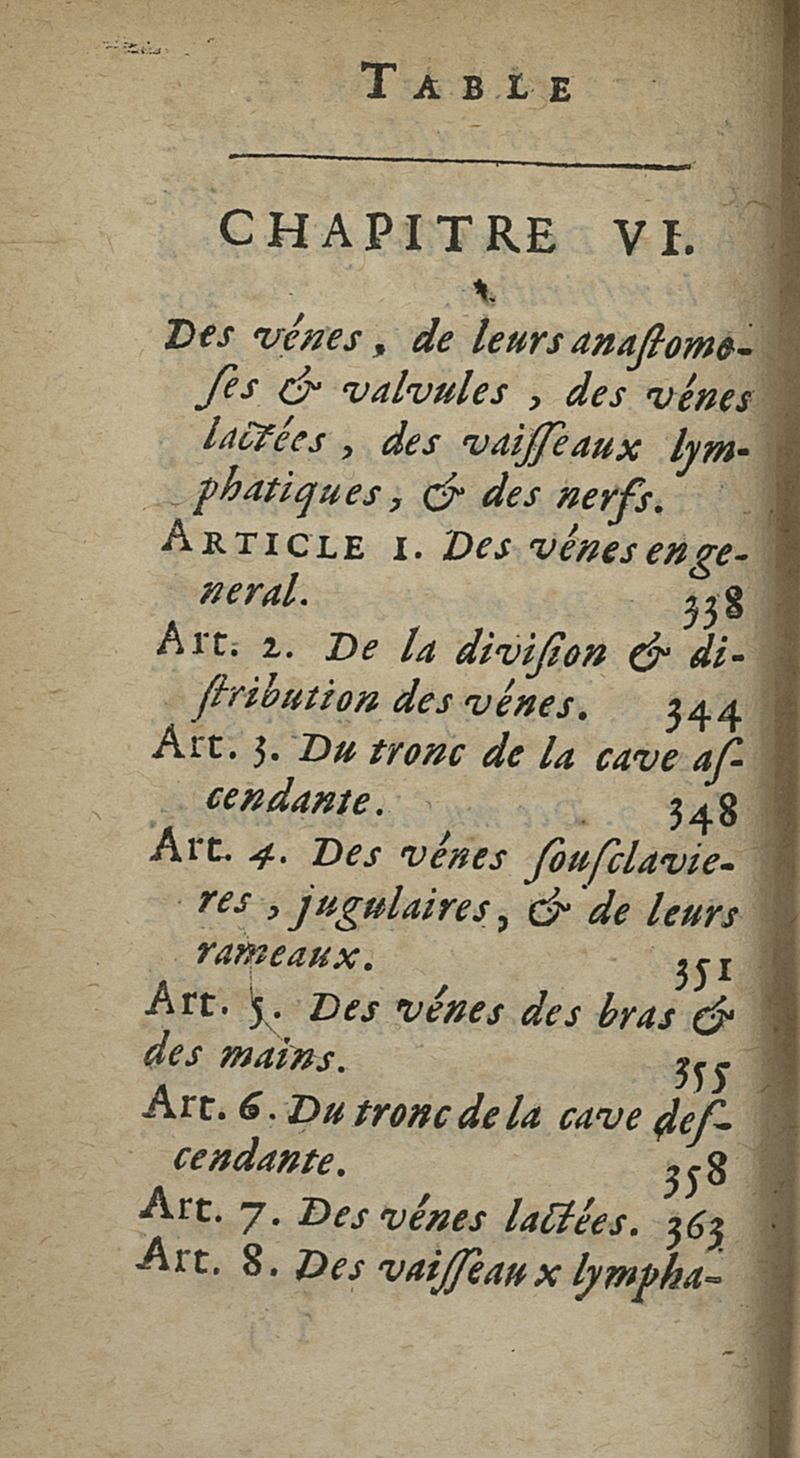 TABLE
CHAPITRE VI.
Des vénes, de leurs anaſtomo-
ſes & valvules, des vénes
lactées, des vaiſſeaux lym-
phatiques, & des nerfs.
ARTICLE 1. Des vénes en ge-
neral. 338
Art. 2. De la diviſion & di-
ſtribution des vénes. 344
Art. 3. Du tronc de la cave aſ-
cendante. 348
Art. 4. Des vénes ſouſclavie-
res, jugulaires, & de leurs
rameaux. 351
Art. 5. Des vénes des bras &
des mains. 355
Art. 6. Du tronc de la cave deſ-
cendante. 358
Art. 7. Des vénes lactées. 363
Art. 8. Des vaiſſeaux lympha-